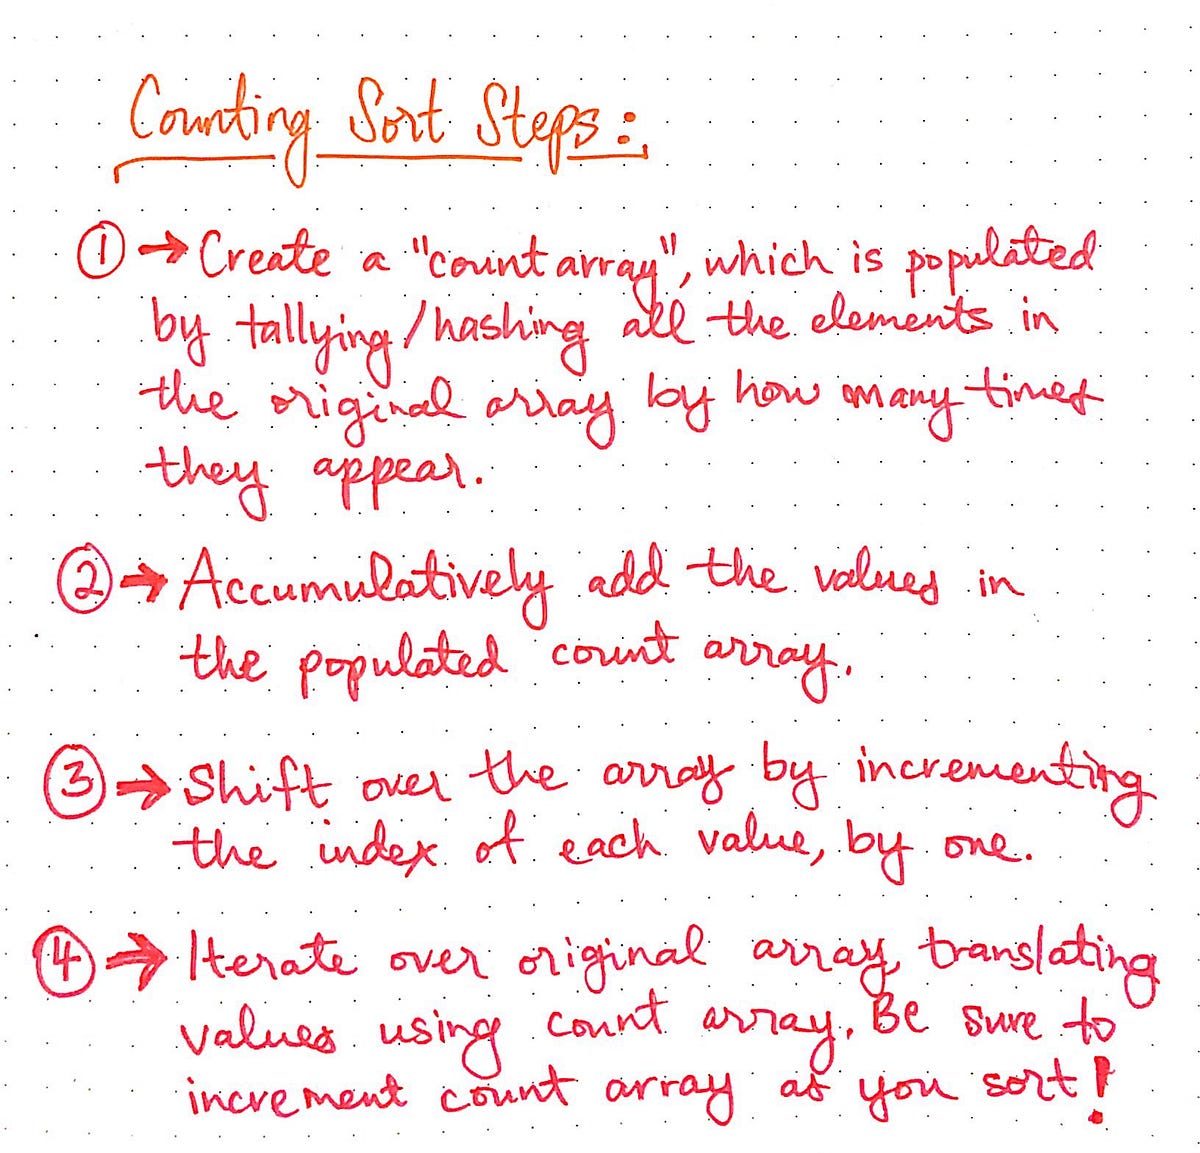 Counting Sort Steps:
① → Create a "count array", which is populated
by tallying/hashing all the elements in
the original array by how many times
they appear.
② → Accumulatively add the values in
the populated count array.
③ → Shift over the array by incrementing
the index of each value, by one.
④ → Iterate over original array, translating
values using count array. Be sure to
increment count array as you sort!